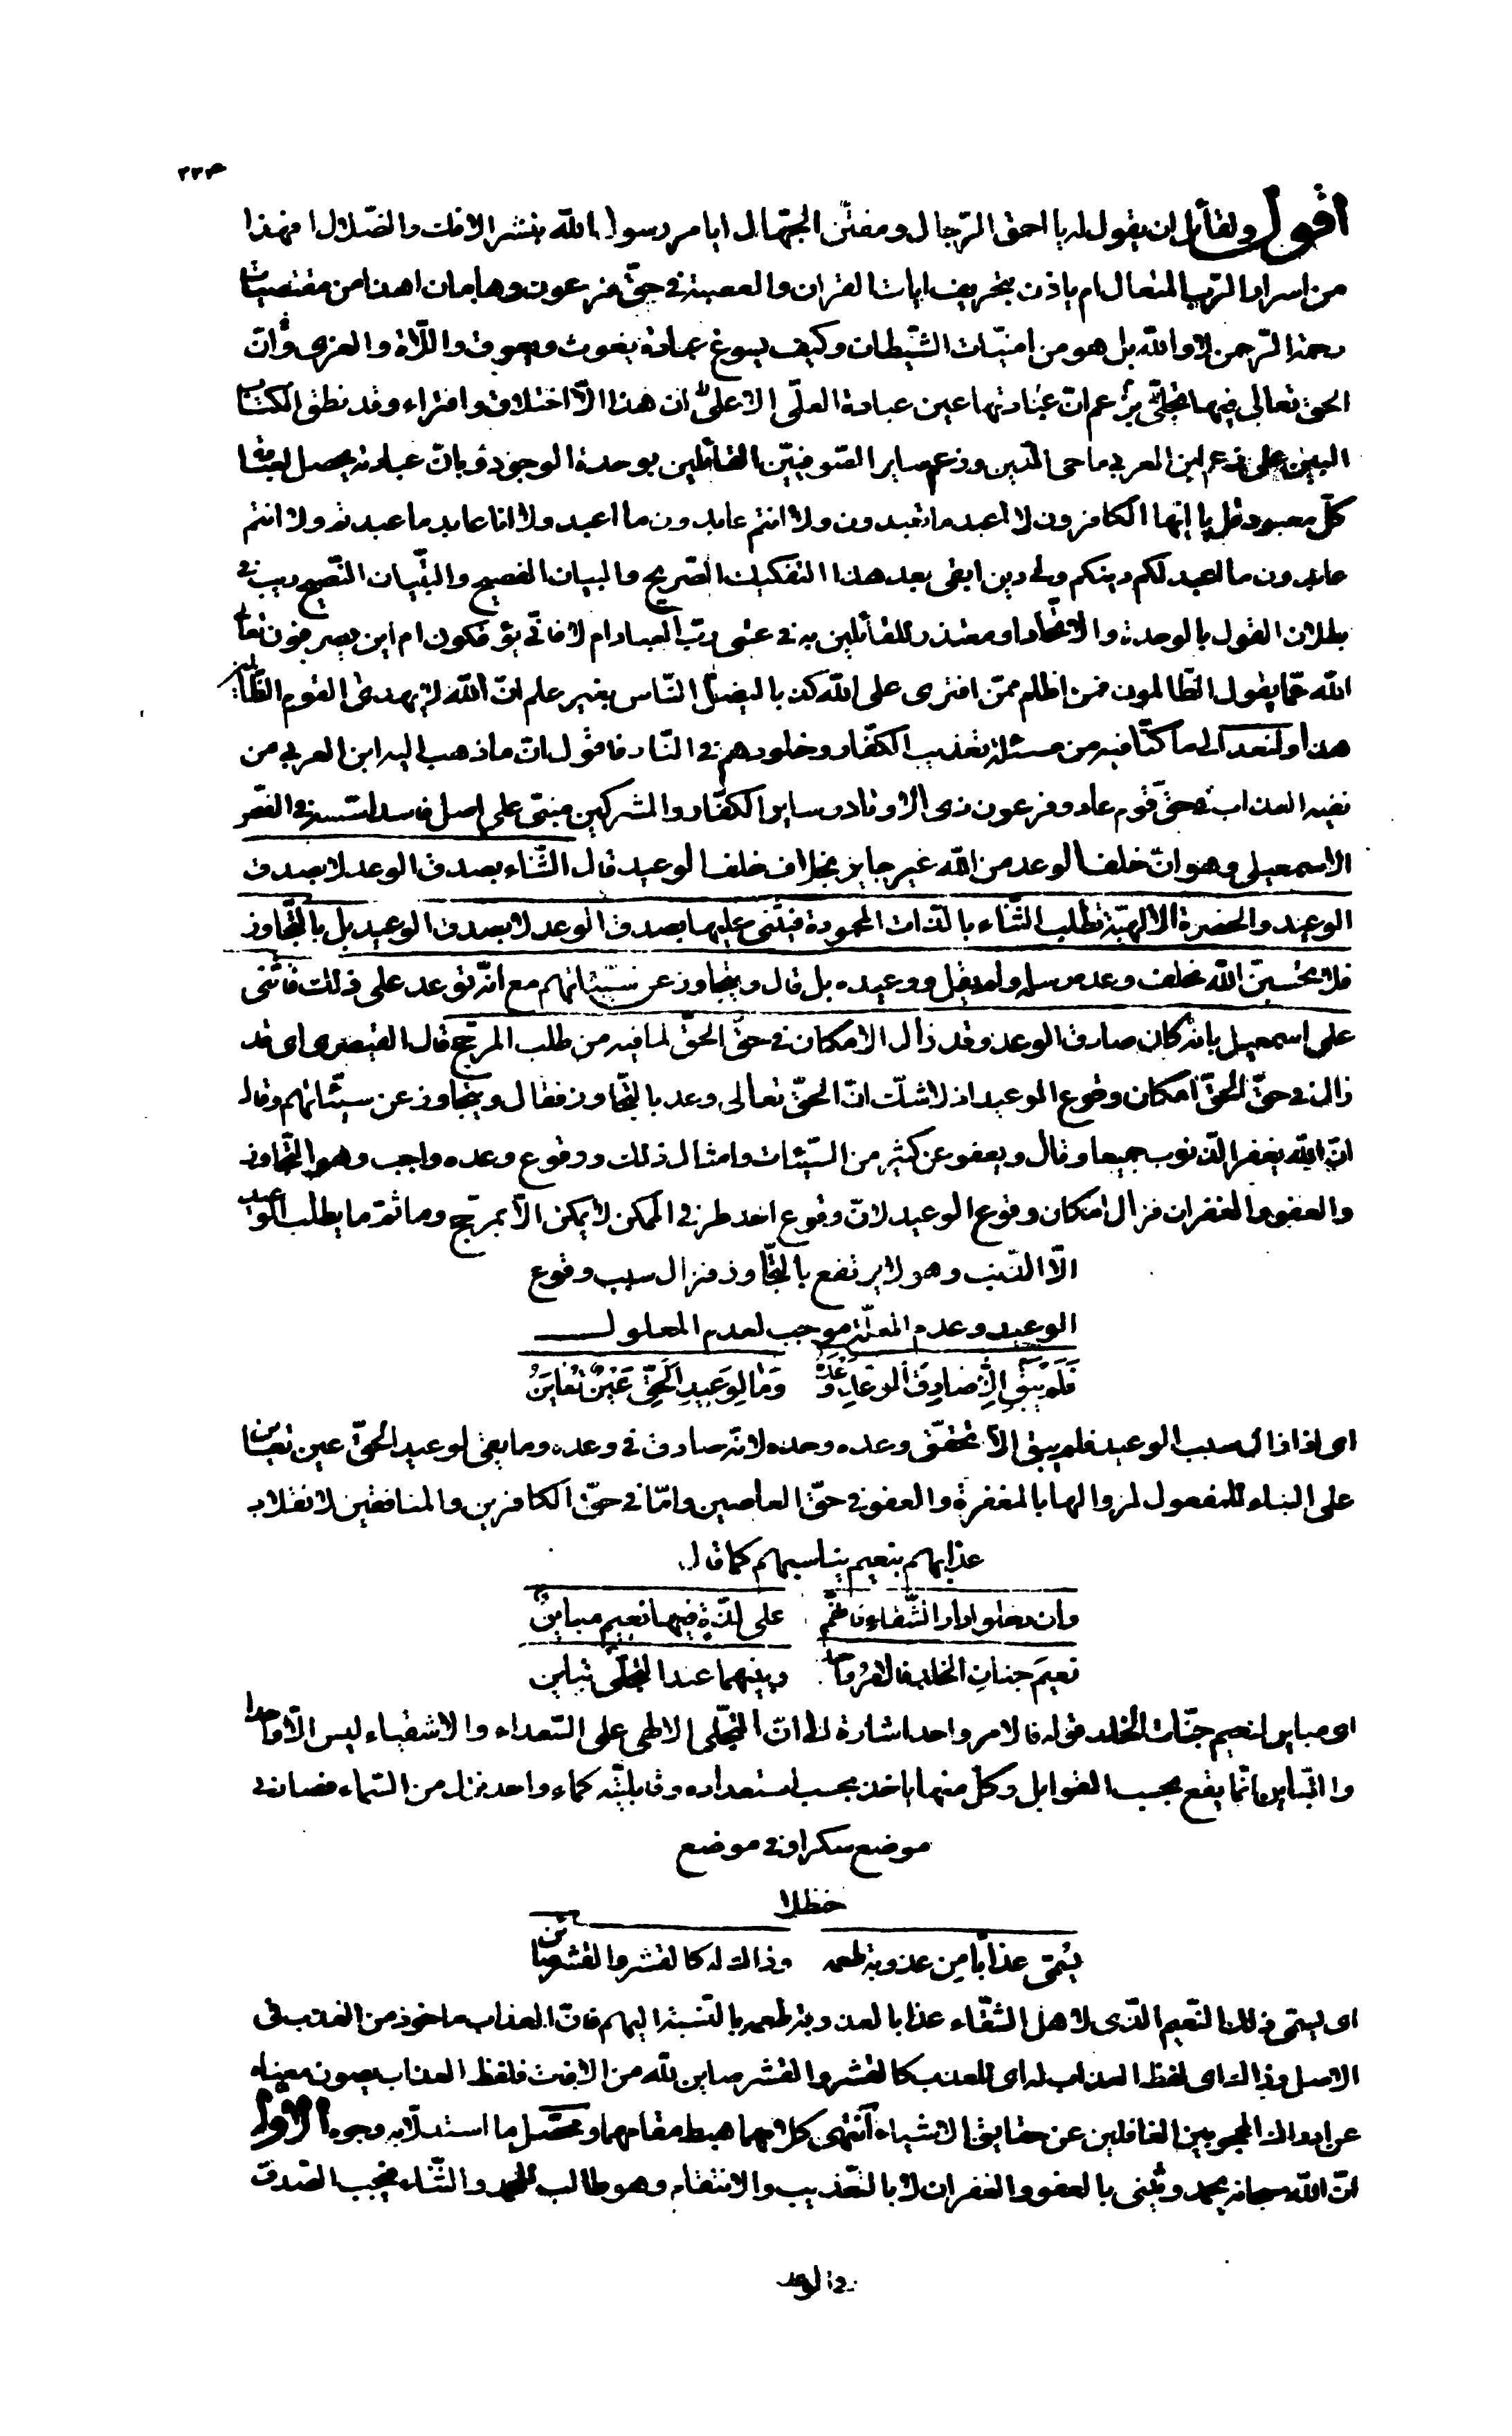 ٢٢٣
اقول ولقائل ان يقول له يا احمق الرّجال ومفتّن الجهّال ايامر رسول الله بنشر الافك والضّلال افهذا
من اسرار الربّ المتعال ام ياذن بتحريف ايات القران والعصبيّة فى حقّ فرعون وهامان اهذا من مقتضيات
رحمة الرّحمن لا والله بل هو من امنيّات الشّيطان وكيف يسوغ عبادة يغوث ويعوق واللّاة والعزى وانّ
الحق تعالى فيها تجلّى بزعم انّ عبادتها عين عبادة العلّى الاعلى ان هذا الّا اختلاق وافتراء وقد نطق الكتاب
المبين على زعم ابن العربي ماحى الدّين وزعم ساير الصّوفيّين القائلين بوحدة الوجود وبانّ عبادته يحصل بعبادة
كلّ معبود قل يا ايّها الكافرون لا اعبد ما تعبدون ولا انتم عابدون ما اعبد ولا انا عابد ما عبدتم ولا انتم
عابدون ما اعبد لكم دينكم ولى دين ابقى بعد هذا التفكيك الصّريح والبيان الفصيح والتّبيان النّصيح ريب فى
بطلان القول بالوحدة والاتّحاد او معتذر للقائلين به فى عتى ربّ العباد ام لا فانّى يؤفكون ام اين يصرفون تعالى
الله عمّا يقول الظّالمون فمن اظلم ممّن افترى على الله كذبا ليضلّ النّاس بغير علم انّ الله لا يهدى القوم الظّالمين
هذا ولنعد الى ما كنّا فيه من مسئلة تعذيب الكفّار وخلودهم فى النّار فاقول انّ ما ذهب اليه ابن العربي من
نفيه العذاب فى حقّ قوم عاد وفرعون ذى الاوتاد وساير الكفّار والمشركين مبنىّ على اصل فاسد اسّسه فى الفصّ
الاسمعيلى وهو انّ خلف الوعد من الله غير جايز بخلاف خلف الوعيد قال الثّناء بصدق الوعد لا بصدق
الوعيد والحضرة الالهيّة تطلب الثّناء بالذّات المحمودة فيثنى عليها بصدق الوعد لا بصدق الوعيد بل بالتّجاوز
فلا تحسبنّ الله مخلف وعده رسله ولم يقل ووعيده بل قال ويتجاوز عن سيّئاتهم مع انّه توعد على ذلك فاثنى
على اسمعيل بانه كان صادق الوعد وقد زال الامكان فى حقّ الحقّ لما فيه من طلب المرجّح قال القيصرى اى قد
زال فى حقّ الحقّ امكان وقوع الوعيد اذ لا شكّ انّ الحقّ تعالى وعد بالتّجاوز فقال ويتجاوز عن سيّئاتهم وقال
انّ الله يغفر الذّنوب جميعا وقال ويعفو عن كثير من السّيّئات وامثال ذلك ووقوع وعده واجب وهو التّجاوز
والعفو والغفران فزال امكان وقوع الوعيد لانّ وقوع احد طرفى الممكن لا يمكن الّا بمرجّح وما ثمّ ما يطلب الوعيد
الّا الذّنب وهو لا يرتفع بالتّجاوز فزال سبب وقوع
الوعيد وعدم العلّة موجب لعدم المعلول
فَلَم يَبقَ الّا صادِقُ الوَعدِ وَحدَهُ وَما لِوَعيدِ الحَقِّ عَينٌ تُعايَنُ
اى اذا زال سبب الوعيد فلم يبق الّا تحقّق وعده وحده لانّه صادق فى وعده وما بقى لوعيد الحقّ عين تعاين
على البناء للمفعول لزوالها بالمغفرة والعفو فى حقّ العاصين وامّا فى حقّ الكافرين والمنافقين لانقلاب
عذابهم بنعيم يناسبهم كما قال
وان دخلوا دار الشّقاء فانّهم على لذّة فيها نعيم مباين
نعيمَ جنانِ الخلد فالامرُ واحد وبينهما عند التجلّى تباين
اى مباين لنعيم جنّات الخلد قوله فالامر واحد اشارة الى انّ التجلّى الالهى على السّعداء والاشقياء ليس الّا واحدا
والتّباين انّما يقع بحسب القوابل وكلّ منها ياخذ بحسب استعداده وقابليّته كماء واحد نزل من السّماء فصار فى
موضع سكرا وفى موضع
حنظلا
يُسمّى عذابًا مِن عذوبة طعمه وذاك له كالقشر والقشر صاين
اى يسمّى ذلك النّعيم الذّى لاهل الشّقاء عذابا لعذوبة طعمه بالنّسبة اليهم فانّ العذاب ماخوذ من العذب فى
الاصل وذاك اى لفظ العذاب له اى للعذب كالقشر والقشر صاين للبّه من الافت فلفظ العذاب يصون معناه
عن ادراك المحجوبين الغافلين عن حقايق الاشياء انتهى كلامهما هبط مقامهما ومحصّل ما استدلّا به وجوه الاوّل
انّ الله سبحانه يحمد ويثنى بالعفو والغفران لا بالتّعذيب والانتقام وهو طالب للحمد والثّناء فيجب الصّدق
فى الوعد